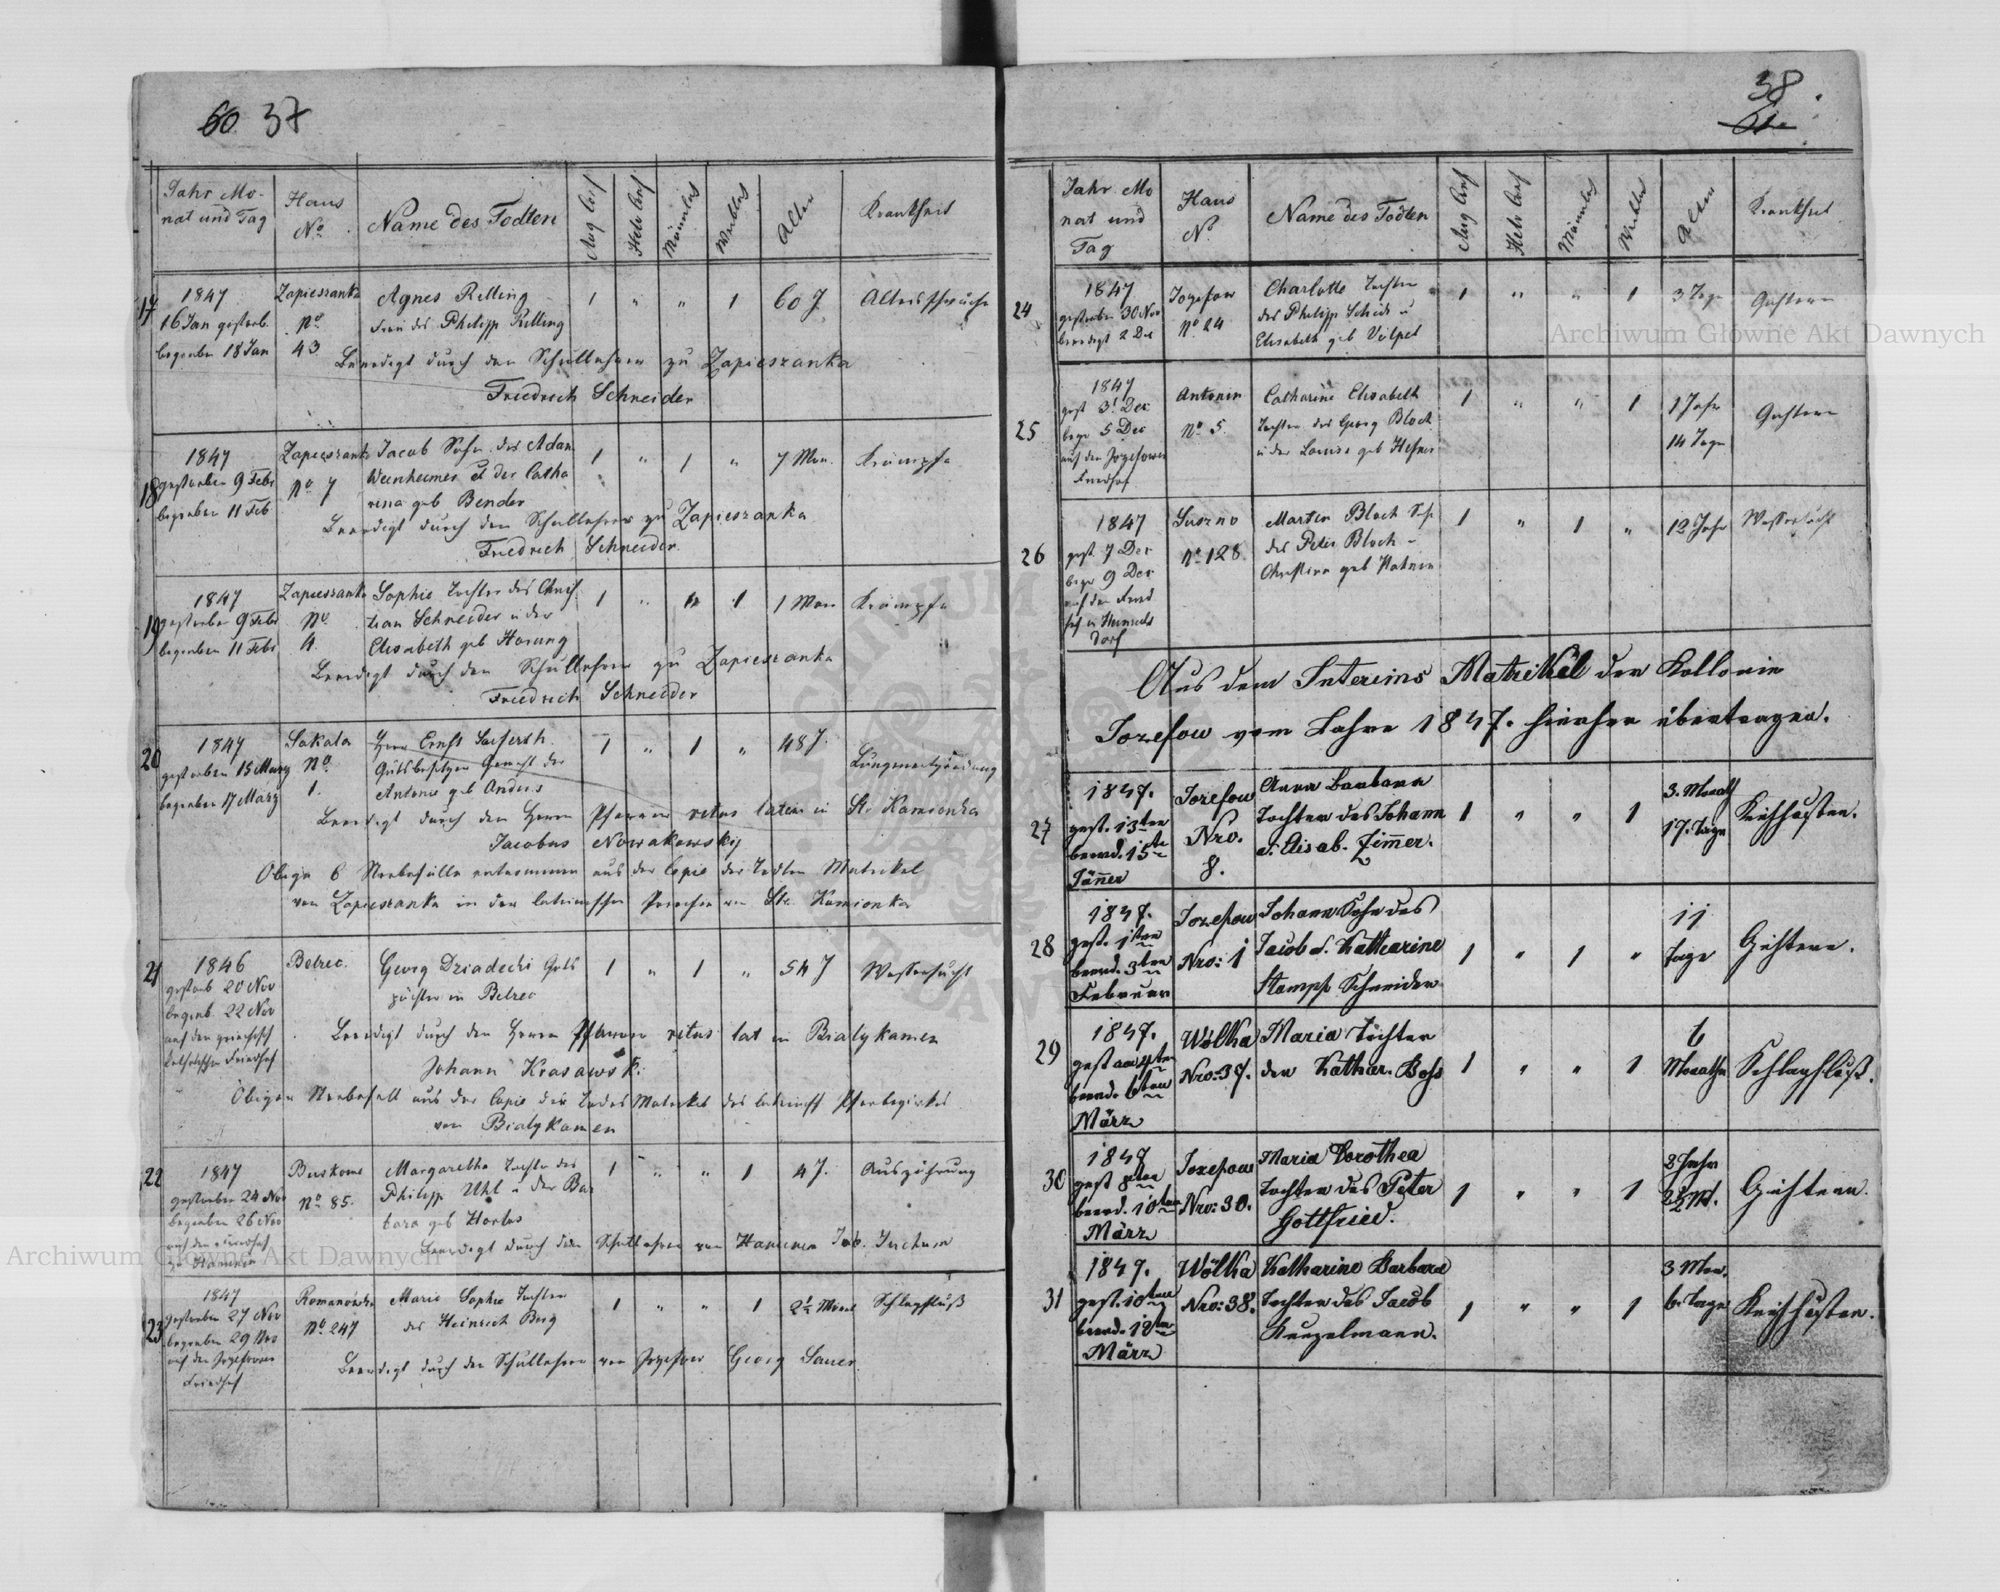 60 37
Jahr Mo-
nat und Tag
Haus
No
Name des Todten
Aug Conf
Helv Conf
Männlich
Weiblich
Alter
Krankheit
17
1847
16 Jan gestorb.
begraben 18 Jan
Zapieszanka
No
43
Agnes Rilling
Frau des Philipp Rilling
1 " " 1 60 J
Altersschwäche
Beerdigt durch den Schullehrer zu Zapieszanka
Friedrich Schneider
18
1847
gestorben 9 Febr
begraben 11 Feb
Zapieszanka
No 7
Jacob Sohn des Adam
Weinheimer u der Catha
rina geb Bender
1 " 1 " 7 Mon.
Krämpfe
Beerdigt durch den Schullehrer zu Zapieszanka
Friedrich Schneider
19
1847
gestorben 9 Febr
begraben 11 Febr
Zapieszanka
No
4.
Sophie Tochter des Chris
tian Schneider u der
Elisabeth geb Hornung
1 " " 1 1 Mon
Krämpfe
Beerdigt durch den Schullehrer zu Zapieszanka
Friedrich Schneider
20
1847
gestorben 15 Marz
begraben 17 Marz
Sokola
No
1.
Herr Ernst Seiferth
Gutsbesitzer Gemahl der
Antonie geb Anders
1 " 1 " 48 J.
Lungenentzündung
Beerdigt durch den Herrn Pfarrer ritus latini in St. Kamionka
Jacobus Nowakowskij
Obige 6 Sterbefälle entnommen aus der Copie der Todten Matrikel
von Zapieszanka in der lateinischen Pfarrei von St. Kamionka
21
1846
gestorb 20 Nov
begrab. 22 Nov
auf den griechisch
katholischen Friedhof
Belzec.
Georg Dziadecki Guts
pächter in Belzec
1 " 1 " 54 J
Wassersucht
Beerdigt durch den Herrn Pfarrer ritus lat in Bialykamen
Johann Krasawski
Obigen Sterbefall aus der Copie der Todes Matrikel des lateinisch Pfarrbezirkes
von Bialykamen
22
1847
gestorben 24 Nov
begraben 26 Nov
auf den Friedhof
zu Hanunin
No 85.
Margaretha Tochter des
Philipp Uhl u der Bar
bara geb
1 " " 1 4 J.
Auszehrung
Beerdigt durch den Schullehrer von Hanunin Jab.
23
1847
gestorben 27 Nov
begraben 29 Nov
auf den Jozefower
Friedhof
Romanówka
No 247
Marie Sophie Tochter
des Heinrich Berg
1 " " 1 2½ Monat
Schlagfluß
Beerdigt durch den Schullehrer von Jozefow Georg Sauer.
38
61
Jahr Mo
nat und
Tag
Haus
N.
Name des Todten
Aug Conf
Helv Conf
Männlich
Weiblich
Alter
Krankheit
24
1847
gestorben 30 Nov
beerdigt 2 Dec
Jozefow
No 24
Charlotte Tochter
des Philipp Scheide u
Elisabeth geb Völpel
1 " " 1 3 Tage
Gichtern
25
1847
gest 3t Dec
begr 5 Dec
auf den Jozefower
Friedhof
Antonin
No 5.
Catharine Elisabeth
Tochter des Georg Bloch
u der Louise geb Hefner
1 " " 1 1 Jahr
14 Tage
Gichtern
26
1847
gest 7 Dec
begr 9 Dec
auf den Fried
hof in Heinrichs
dorf
Suszno
No 128.
Martin Bloch Sohn
des Peter Bloch -
Christine geb
1 " 1 " 12 Jahr
Wassersucht
Aus dem Intereims Matrikel der Kollonie
Jozefow vom Jahre 1847. hierher übertragen.
27
1847.
gest. 13ten
beerd. 15te
Jänner
Jozefow
Nro.
8.
Anna Barbara
Tochter des Johann
d. Elisab. Zimmer.
1 " " 1 3. Monath
17. Tage
Keichhusten.
28
1847.
gest. 1ten
beerd. 3ten
Februar
Jozefow
Nro: 1
Johann Sohn des
Jacob d. Katharine
Stampf Schneider
1 " 1 " 11
Tage
Gichtern.
29
1847.
gest am 4ten
beerd. 6ten
März
Wólka
Nro: 37.
Maria Tochter
der Kathar. Boss
1 " " 1 6
Monathe
Schlagfluß.
30
1847
gest 8ten
beerd. 10ten
März
Jozefow
Nro: 30.
Maria Dorothea
Tochter des Peter
Gottfried.
1 " " 1 2 Jahr
2½ Mt.
Gichtern.
31
1847.
gest. 10ten
beerd. 12ten
März
Wólka
Nro: 38.
Katharine Barbara
Tochter des Jacob
Kunzelmann.
1 " " 1 3 Mon.
6. Tage
Keichhusten.
Archiwum Główne Akt Dawnych
Archiwum Główne Akt Dawnych